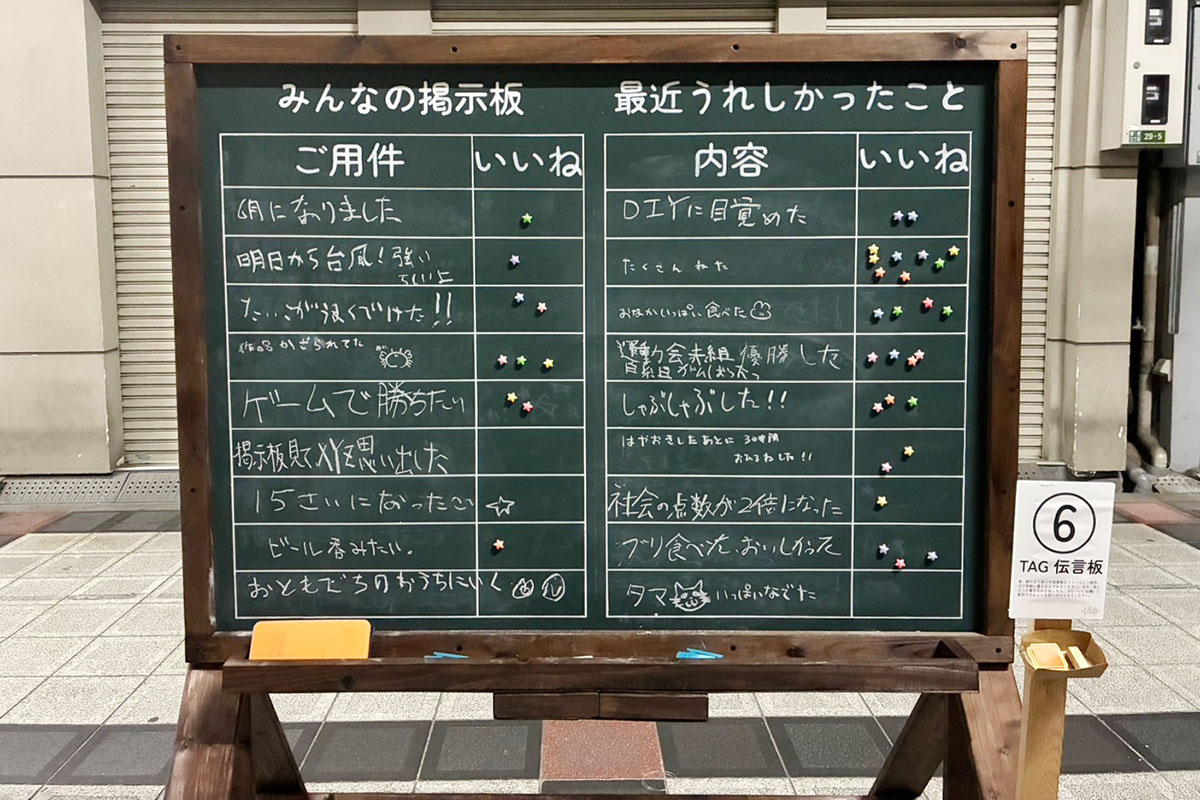 みんなの掲示板
ご用件
いいね
6月になりました
明日から台風!強い
らしいよ
たいこが良くできた!!
作品かざられてた
ゲームで勝ちたい
掲示板見てXYZ思い出した
15さいになったこ
ビール呑みたい。
おともだちのおうちにいく
最近うれしかったこと
内容
いいね
DIYに目覚めた
たくさんねた
おなかいっぱい食べた
運動会赤組優勝した
しゃぶしゃぶした!!
はやおきしたあとに3時間
おひるねした!!
社会の点数が2倍になった
ブリ食べた、おいしかった
タマ いっぱいなでた
6
TAG 伝言板
29-5